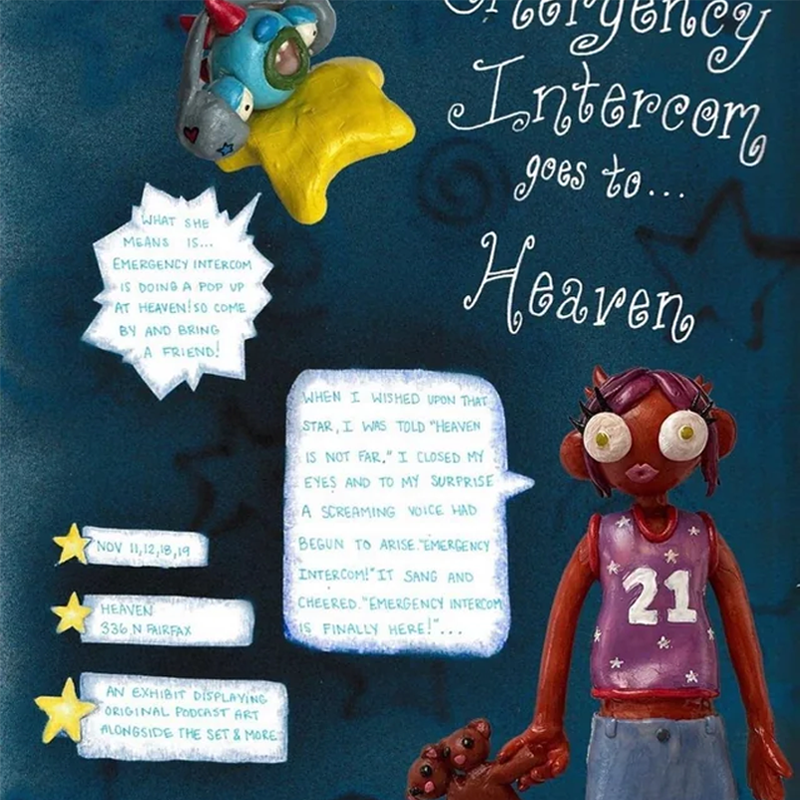 Emergency
Intercom
goes to...
Heaven
WHAT SHE
MEANS IS...
EMERGENCY INTERCOM
IS DOING A POP UP
AT HEAVEN! SO COME
BY AND BRING
A FRIEND!
WHEN I WISHED UPON THAT
STAR, I WAS TOLD "HEAVEN
IS NOT FAR." I CLOSED MY
EYES AND TO MY SURPRISE
A SCREAMING VOICE HAD
BEGUN TO ARISE. "EMERGENCY
INTERCOM!" IT SANG AND
CHEERED. "EMERGENCY INTERCOM
IS FINALLY HERE!"...
NOV 11,12,18,19
HEAVEN
336 N FAIRFAX
AN EXHIBIT DISPLAYING
ORIGINAL PODCAST ART
ALONGSIDE THE SET & MORE
21